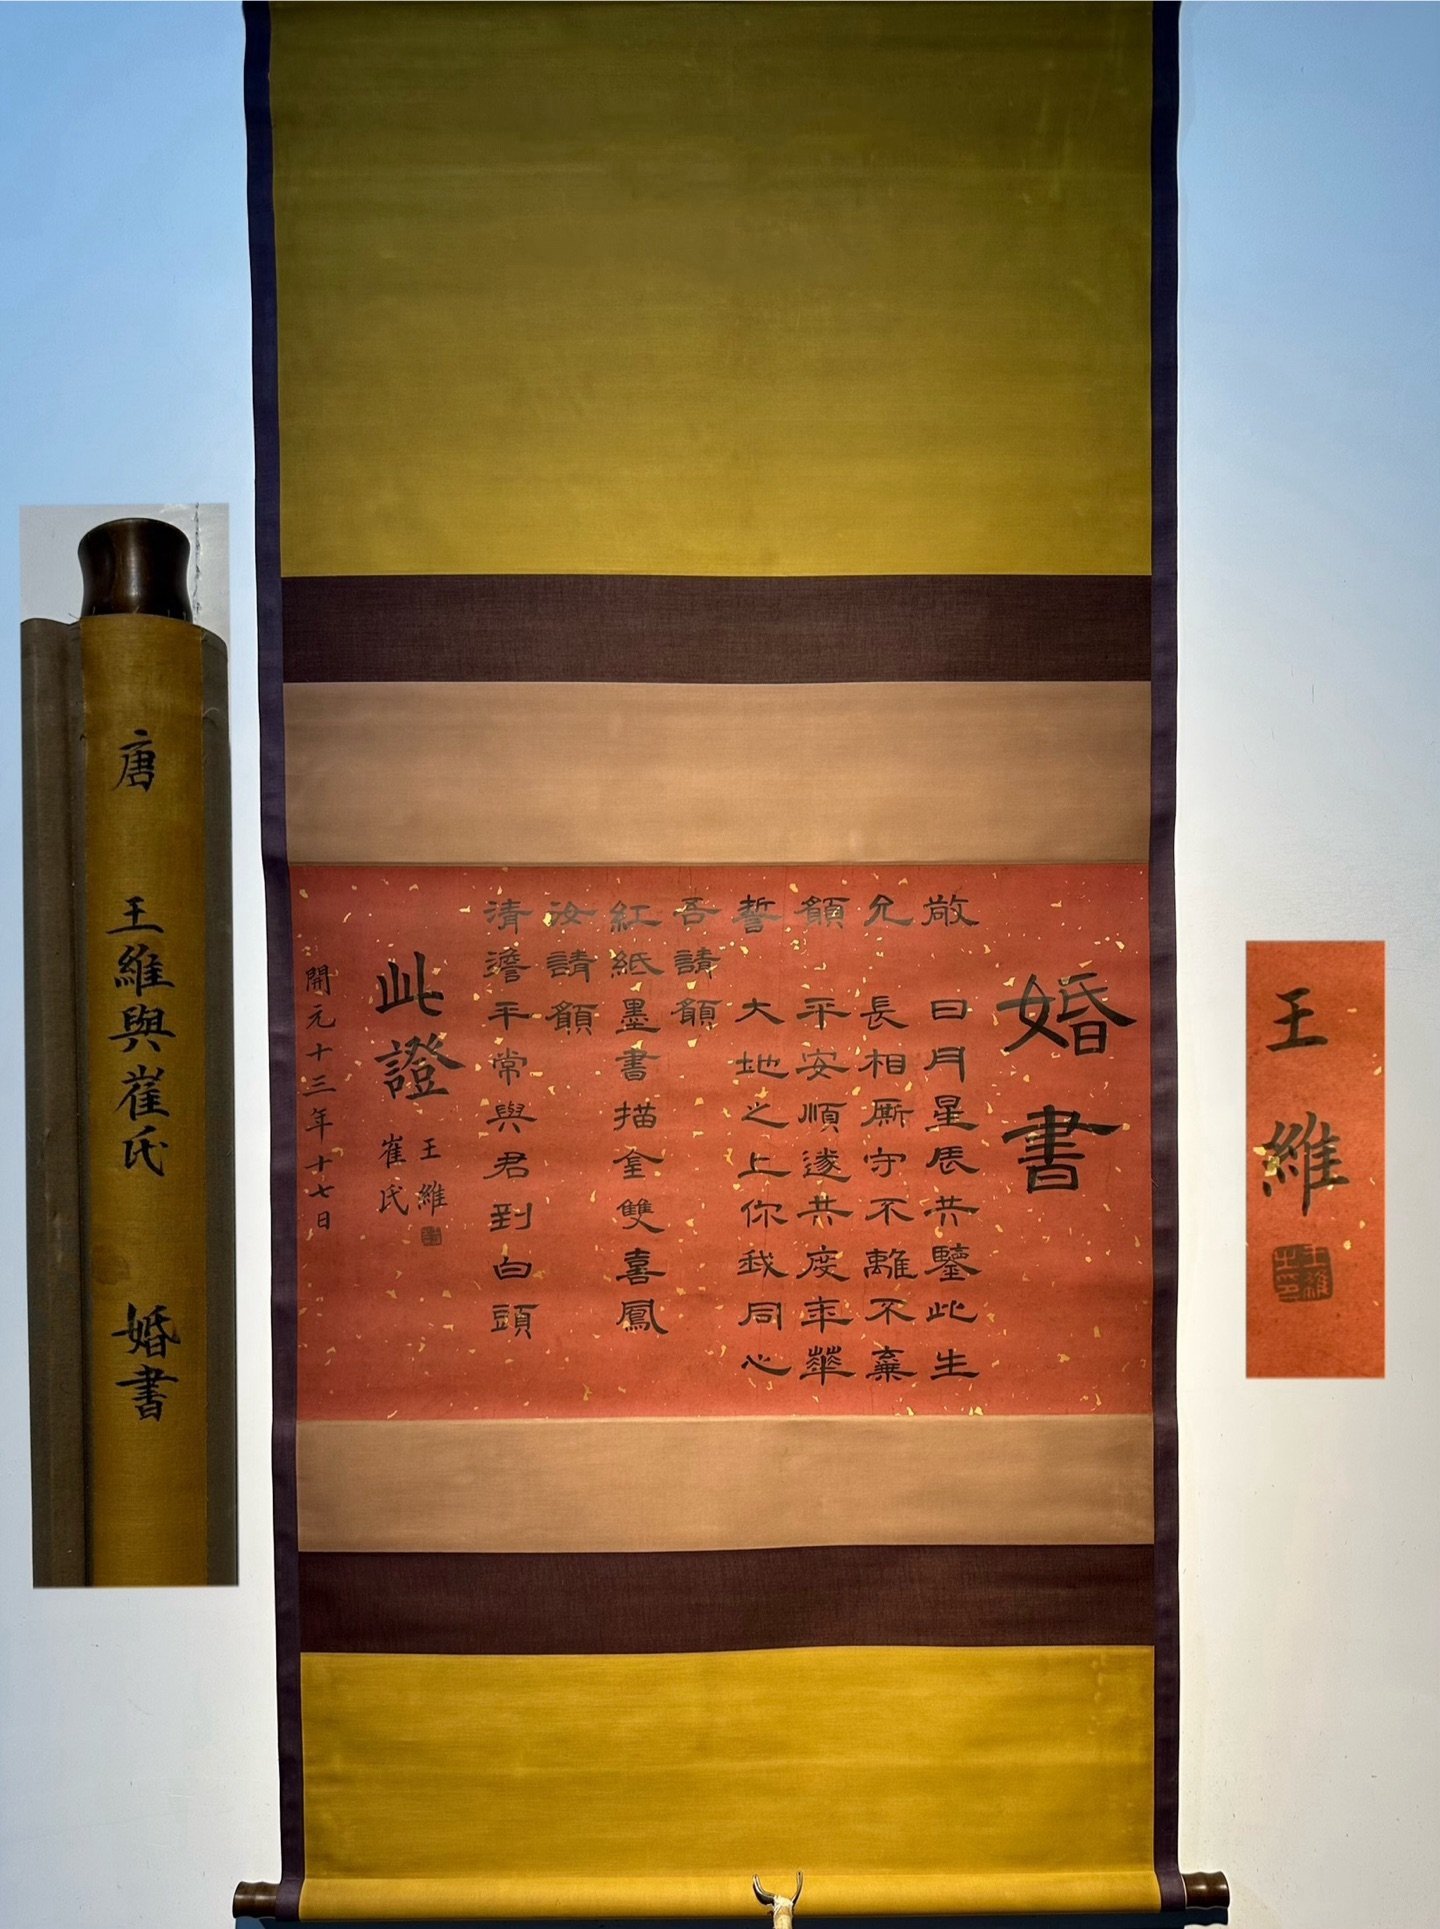 婚書
敬 日月星辰共鑒此生
允 長相厮守不離不棄
願 平安順遂共度年華
誓 大地之上你我同心
吾請願
紅紙墨書描金雙喜鳳
汝請願
清澹平常與君到白頭
此證
王維
崔氏
開元十三年十七日
唐 王維與崔氏 婚書
王維
王維之印